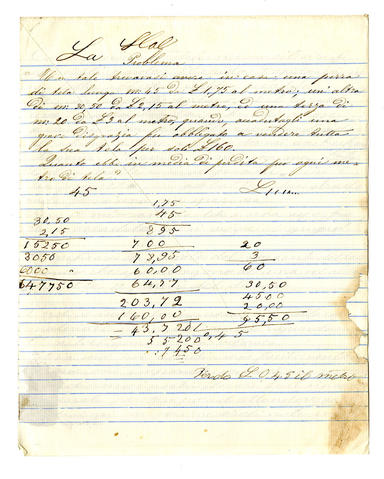 La Scol
Problema
Un tale trovavasi avere in casa una pezza
di tela lunga m. 45 da £ 1,75 al metro; un'altra
di m. 30,50 da £ 2,15 al metro, ed una terza di
m. 20 da £3 al metro, quando, accadutagli una
grav. disgrazia fu obbligato a vendere tutta
la sua tela per sole £160.
Quanto ebbe in media di perdita per ogni me-
tro di tela?
45
1,75
30,50 45
2,15 895
15250 700 20
3050 78,95 3
6000 " 60,00 60
647750 64,77 30,50
203,72 45 00
160,00 20,00
43,7 20 95,50
5 5 200 0,45
7450
Perde £. 0,45 il metro